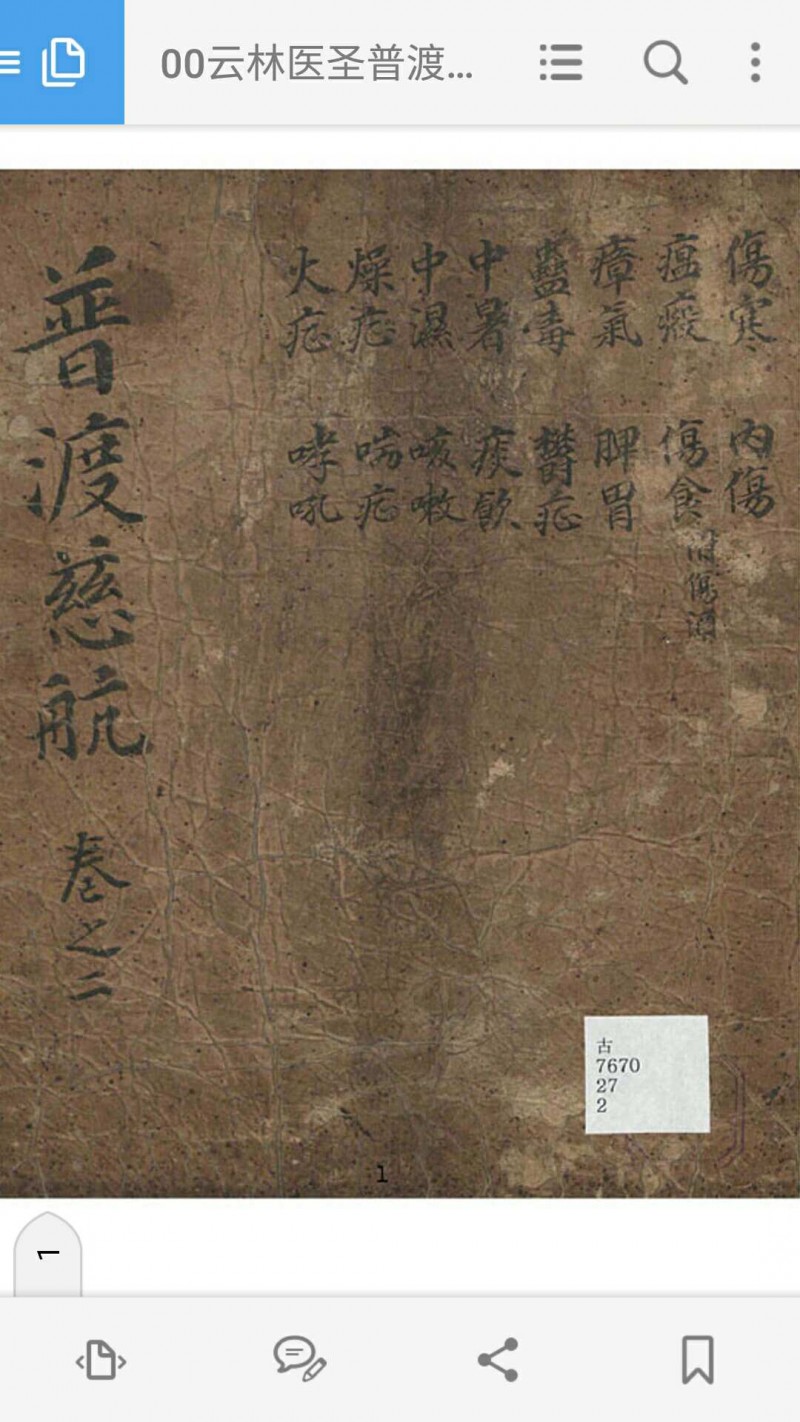 00云林医圣普渡...
傷寒 內傷
瘟疫 傷食 附傷酒
瘴氣 脾胃
蠱毒 鬱症
中暑 痰飲
中濕 咳嗽
燥症 喘症
火症 哮吼
普渡慈航 卷之二
古
7670
27
2
1
1